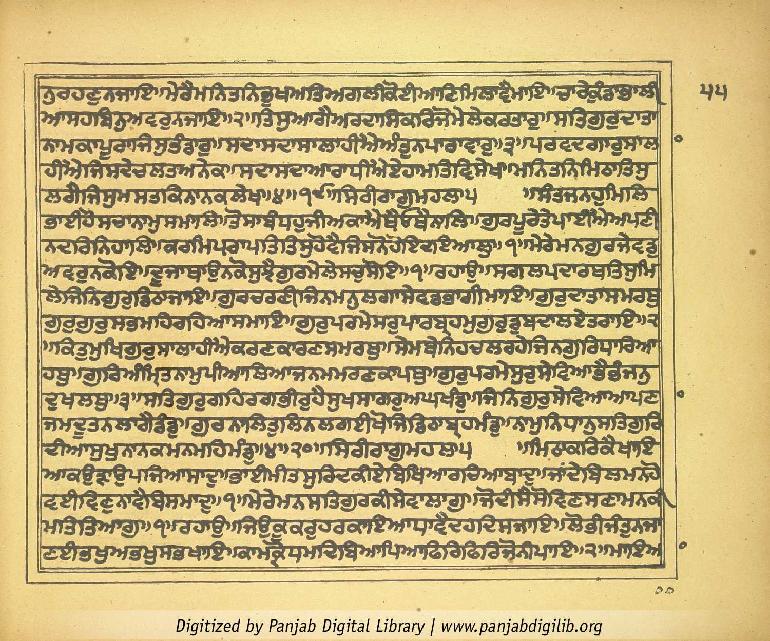 ਨੁਰਹਣੁਨਜਾਇ॥ਮੇਰੈਮਨਿਤਨਿਭੁਖਅਤਿਅਗਲੀਕੋਈਆਣਿਮਿਲਾਵੈਮਾਇ॥ਚਾਰੇਕੁੰਡਾਭਾਲੀ
੫੫
ਆਸਹਬਿਨੁਅਵਰੁਨਜਾਇ॥੨॥ਤਿਸੁਆਗੈਅਰਦਾਸਿਕਰਿਜੋਮੇਲੇਕਰਤਾਰੁ॥ਸਤਿਗੁਰੁਦਾਤਾ
ਨਾਮਕਾਪੂਰਾਜਿਸੁਭੰਡਾਰੁ॥ਸਦਾਸਦਾਸਾਲਾਹੀਐਅੰਤੁਨਪਾਰਾਵਾਰੁ॥੩॥ਪਰਵਦਗਾਰੁਸਾਲ
ਹੀਐਜਿਸਦੇਚਲਤਅਨੇਕ॥ਸਦਾਸਦਾਆਰਾਧੀਐਏਹਾਮਤਿਵਿਸੇਖ॥ਮਨਿਤਨਿਮਿਠਾਤਿਸੁ
ਲਗੈਜਿਸੁਮਸਤਕਿਨਾਨਕਲੇਖ॥੪॥੧੯॥ਸਿਰੀਰਾਗੁਮਹਲਾ੫ ॥ਸੰਤਜਨਹੁਮਿਲਿ
ਭਾਈਹੋਸਚਾਨਾਮੁਸਮਾਲਿ॥ਤੋਸਾਬੰਧਹੁਜੀਅਕਾਐਥੈਓਥੈਨਾਲਿ॥ਗੁਰਪੂਰੇਤੇਪਾਈਐਅਪਣੀ
ਨਦਰਿਨਿਹਾਲਿ॥ਕਰਮਿਪਰਾਪਤਿਤਿਸੁਹੋਵੈਜਿਸਨੋਹੋਇਦਇਆਲੁ॥੧॥ਮੇਰੇਮਨਗੁਰਜੇਵਡੁ
ਅਵਰੁਨਕੋਇ॥ਦੂਜਾਥਾਉਨਕੋਸੁਝੈਗੁਰਮੇਲੇਸਚੁਸੋਇ॥੧॥ਰਹਾਉ॥ਸਗਲਪਦਾਰਥਤਿਸੁਮਿ
ਲੇਜਿਨਿਗੁਰੁਡਿਠਾਜਾਇ॥ਗੁਰਚਰਣੀਜਿਨਮਨੁਲਗਾਸੇਵਡਭਾਗੀਮਾਇ॥ਗੁਰੁਦਾਤਾਸਮਰਥੁ
ਗੁਰੁਗੁਰੁਸਭਮਹਿਰਹਿਆਸਮਾਇ॥ਗੁਰੁਪਰਮੇਸਰੁਪਾਰਬ੍ਰਹਮੁਗੁਰੁਡੁਬਦਾਲਏਤਰਾਇ॥੨
॥ਕਿਤੁਮੁਖਿਗੁਰੁਸਾਲਾਹੀਐਕਰਣਕਾਰਣਸਮਰਥੁ॥ਸੇਮਥੇਨਿਹਚਲਰਹੇਜਿਨਗੁਰਿਧਾਰਿਆ
ਹਥੁ॥ਗੁਰਿਅੰਮ੍ਰਿਤਨਾਮੁਪੀਆਲਿਆਜਨਮਮਰਣਕਾਪਥੁ॥ਗੁਰੁਪਰਮੇਸੁਰੁਸੇਵਿਆਭੈਭੰਜਨੁ
ਦੁਖਲਥੁ॥੩॥ਸਤਿਗੁਰੁਗਹਿਰਗਭੀਰੁਹੈਸੁਖਸਾਗਰੁਅਘਖੰਡੁ॥ਜਿਨਿਗੁਰੁਸੇਵਿਆਆਪਣ
ਜਮਦੂਤਨਲਾਗੈਡੰਡੁ॥ਗੁਰਨਾਲਿਤੁਲਿਨਲਗਈਖੋਜਿਡਿਠਾਬ੍ਰਹਮੰਡੁ॥ਨਾਮੁਨਿਧਾਨੁਸਤਿਗੁਰਿ
ਦੀਆਸੁਖੁਨਾਨਕਮਨਮਹਿਮੰਡੁ॥੪॥੨੦॥ਸਿਰੀਰਾਗੁਮਹਲਾ੫ ॥ਮਿਠਾਕਰਿਕੈਖਾਇ
ਆਕਉੜਾਉਪਜਿਆਸਾਦੁ॥ਭਾਈਮੀਤਸੁਰਿਦਕੀਏਬਿਖਿਆਰਚਿਆਬਾਦੁ॥ਜਾਂਦੇਬਿਲਮਨਹੋ
ਵਈਵਿਣੁਨਾਵੈਬਿਸਮਾਦੁ॥੧॥ਮੇਰੇਮਨਸਤਿਗੁਰਕੀਸੇਵਾਲਾਗੁ॥ਜੋਦੀਸੈਸੋਵਿਣਸਣਾਮਨਕੀ
ਮਤਿਤਿਆਗੁ॥੧॥ਰਹਾਉ॥ਜਿਉਕੂਕਰੁਹਰਕਾਇਆਧਾਵੈਦਹਦਿਸਜਾਇ॥ਲੋਭੀਜੰਤੁਨਜਾ
ਣਈਭਖੁਅਭਖੁਸਭਖਾਇ॥ਕਾਮਕ੍ਰੋਧਮਦਿਬਿਆਪਿਆਫਿਰਿਫਿਰਿਜੋਨੀਪਾਇ॥੨॥ਮਾਇਆ
Digitized by Panjab Digital Library | www.panjabdigilib.org